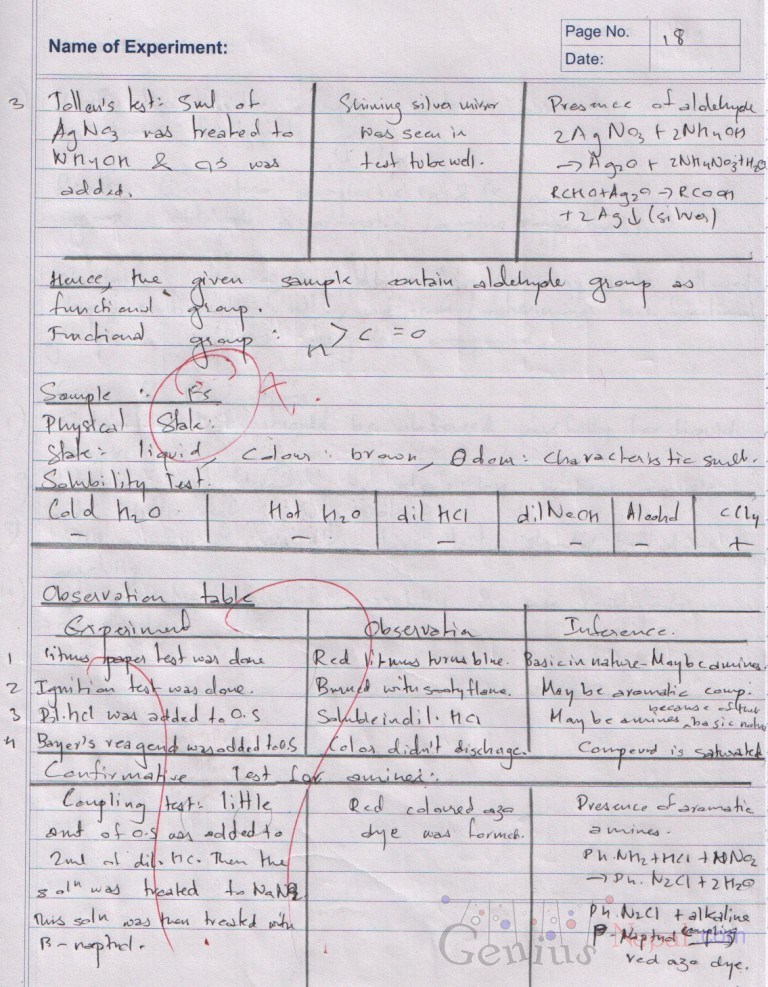 Name of Experiment:
Page No. 18
Date:
3 Tollen's test: 5ml of
AgNO3 was treated to
NH4OH & OS was
added.
Shining silver mirror
was seen in
test tube wall.
Presence of aldehyde
2AgNO3 + 2NH4OH
→ Ag2O + 2NH4NO3+H2O
RCHO+Ag2O → RCOOH
+ 2Ag↓ (silver)
Hence, the given sample contain aldehyde group as
functional group.
Functional group : H > C = O
Sample : F5
Physical State:
State: liquid, Colour: brown, Odour: characteristic smell.
Solubility Test.
Cold H2O Hot H2O dil HCl dil NaOH Alcohol CCl4
- - - - - +
Observation table
Experiment Observation Inference.
1 Litmus paper test was done Red litmus turns blue. Basic in nature-May be amines.
2 Ignition test was done. Burned with sooty flame. May be aromatic comp:
3 Dil. HCl was added to O.S Soluble in dil. HCl May be amines because of their basic nature
4 Bayer's reagend was added to O.S Color didn't discharge. Compound is saturated
Confirmative Test for amines:
Coupling test: little
amt of O.S was added to
2ml of dil. HC. Then the
soln was treated to NaNO2
This soln was then treated with
B-napthol.
Red coloured azo
dye was formed.
Presence of aromatic
amines.
Ph.NH2 + HCl + HNO2
→ Ph. N2Cl + 2H2O
Ph.N2Cl + alkaline
β-Napthol coupling
red azo dye.
Genius Nepal.com